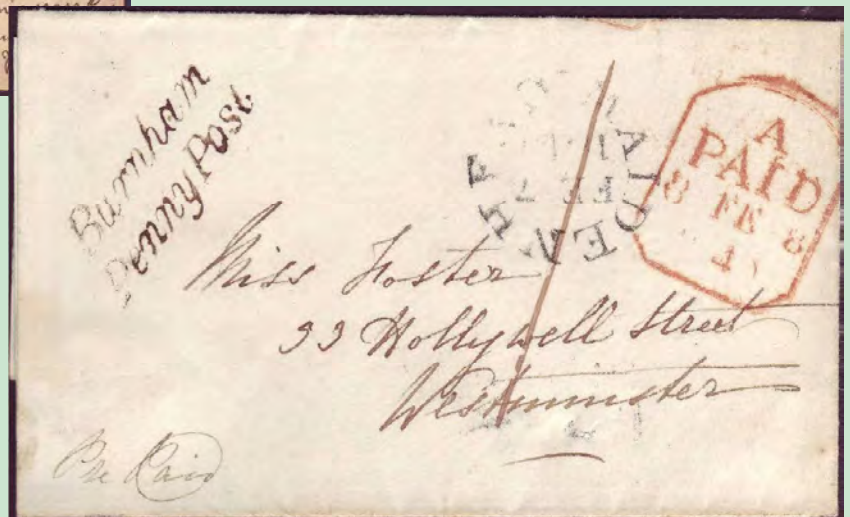 Burnham
Penny Post
A
PAID
8 FE 8
FE 7
Miss Foster
33 Hollywell Street
Westminster
Pre Paid